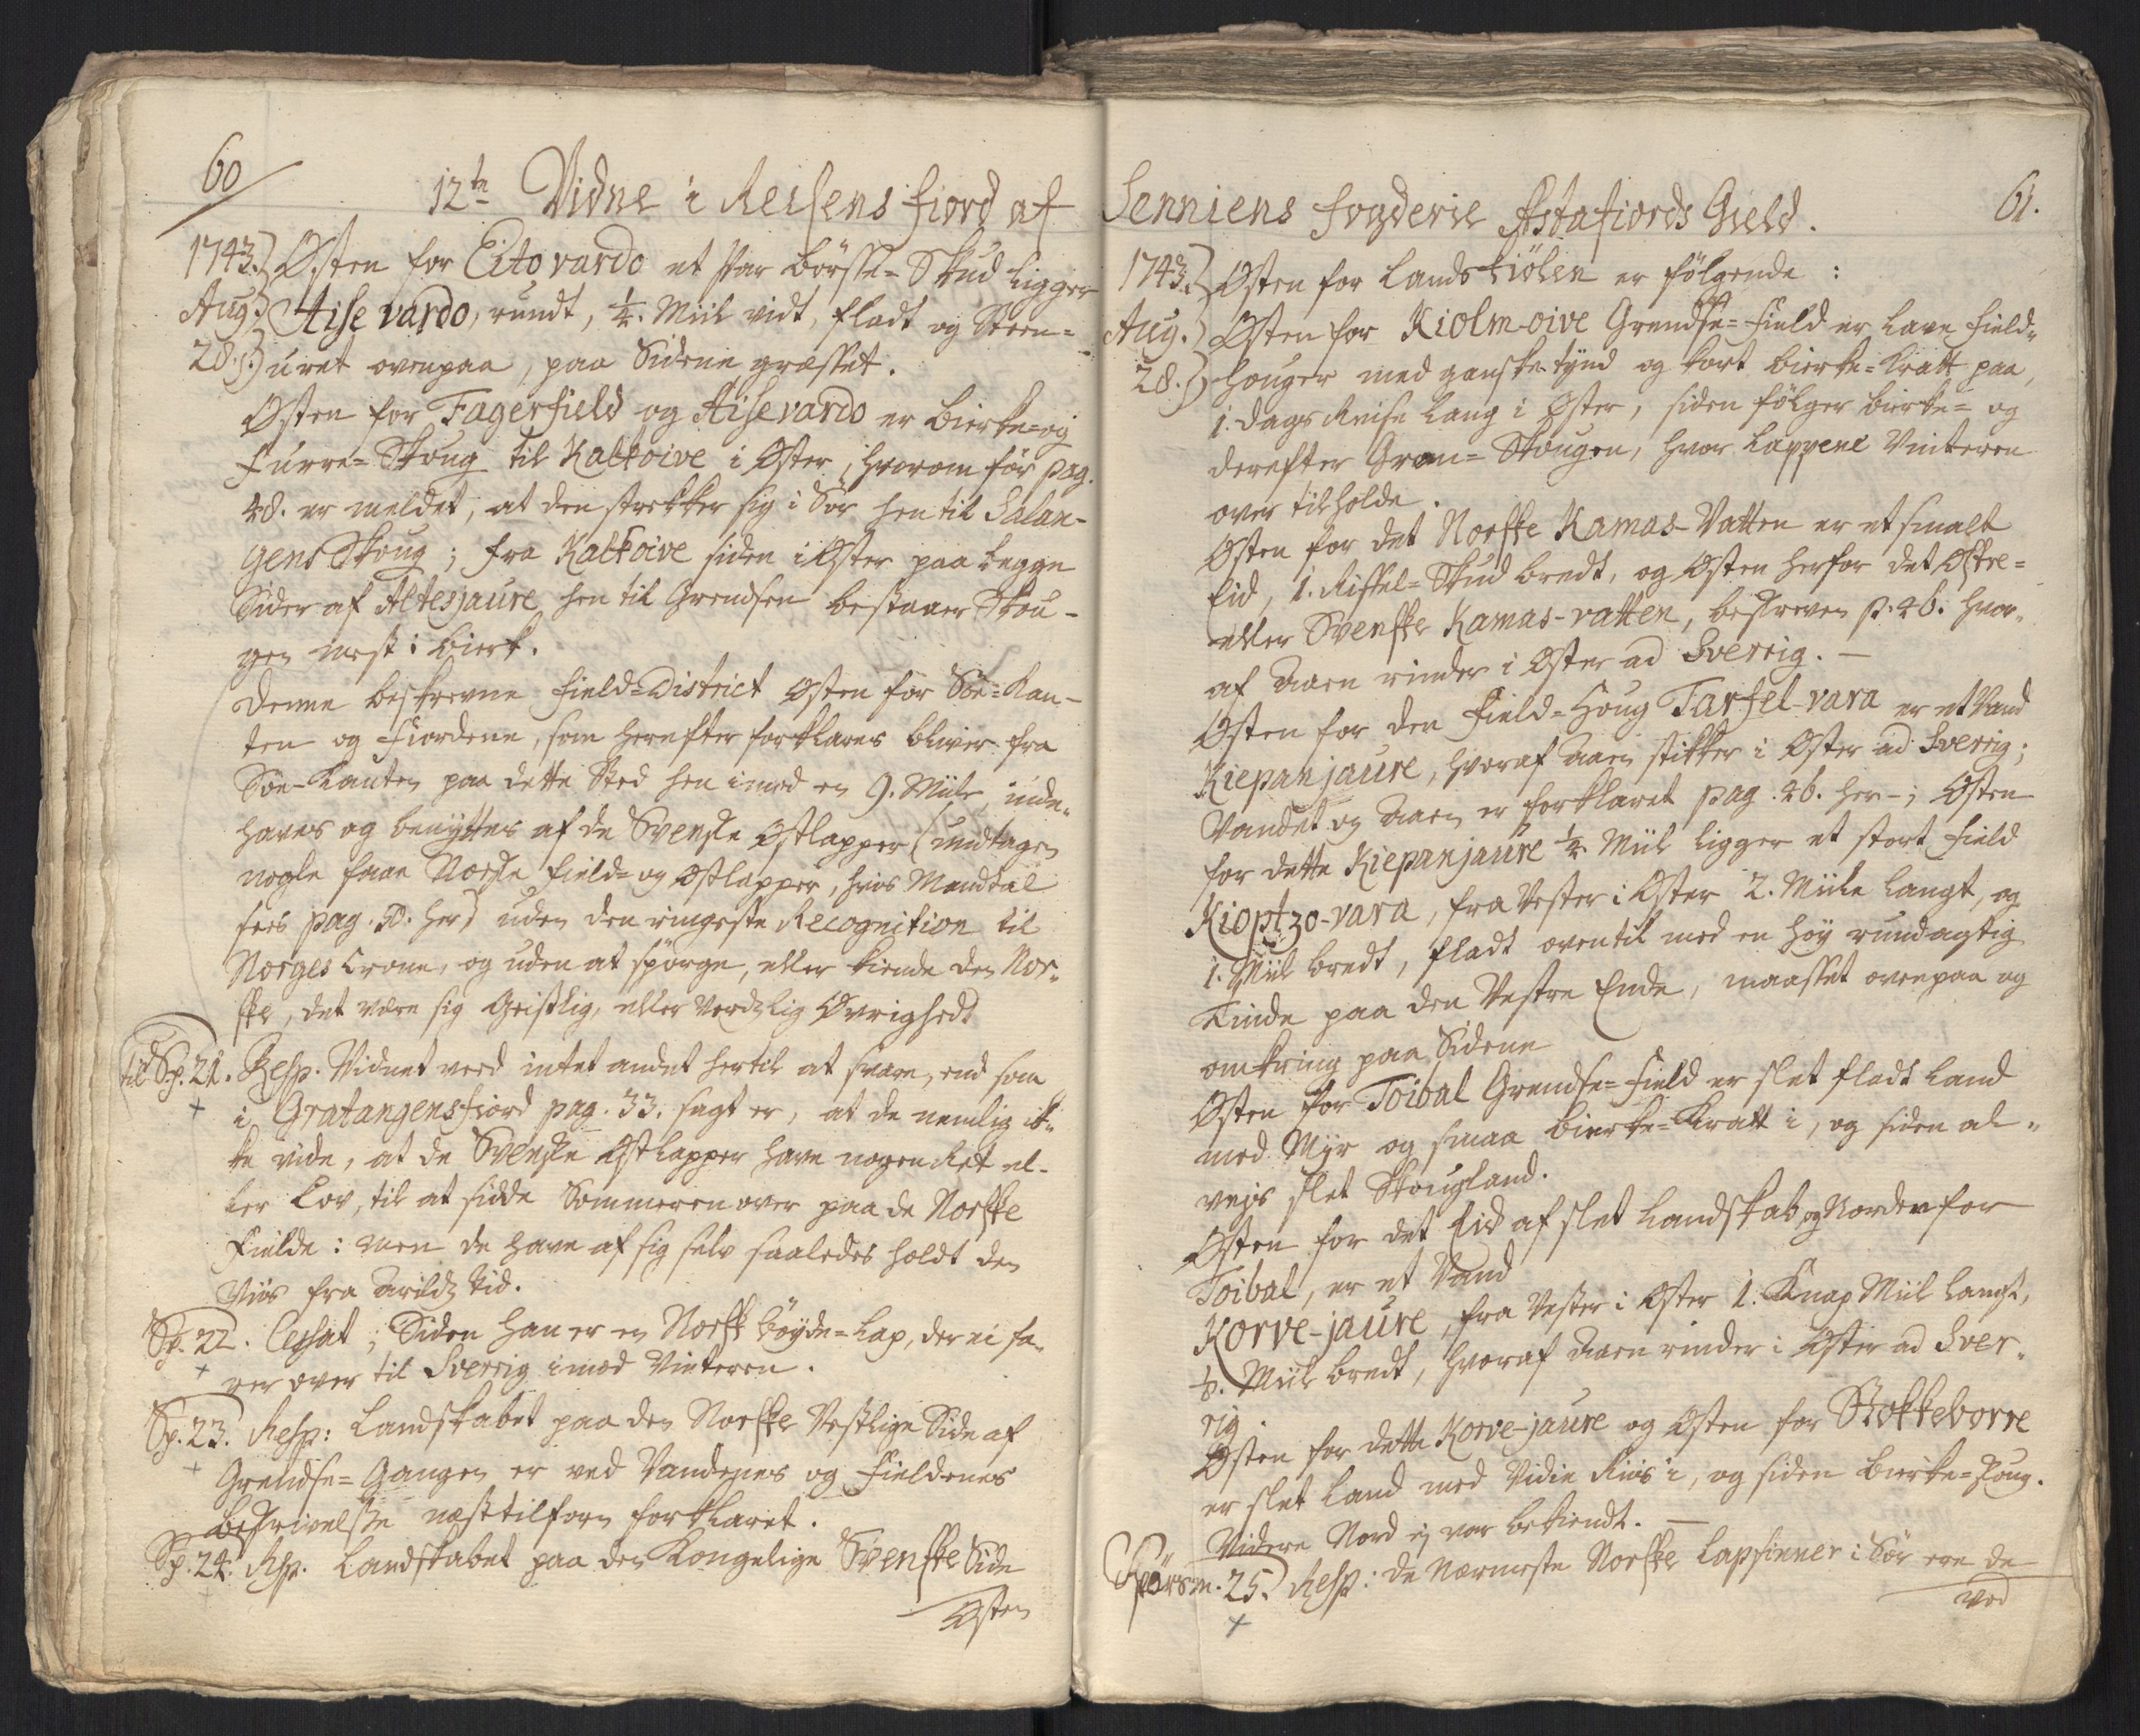 60
12te Vidne i Reisens fiord af
1743.) Østen for Eito vardo et Par Börsse-Skud ligger
Aug:) Aise vardo, rundt, ¼. Miil vidt, fladt og Steen-
28.) uret ovenpaa, paa Sidene græsset.
Østen for Fagerfield og Aisevardo er Birke- og
Furre-Skoug til Kalkoive i Øster, hvorom för pag.
48. er meldet, at den strekker sig i Sör hen til Salan-
gens Skoug; fra Kalkoive siden i Øster paa begge
Sider af Altesjaure hen til Grendsen bestaaer Skou-
gen mest i Birk.
Denne beskrevne Field-District Østen for Söe-Kan-
ten og Fiordene, som herefter forklares bliver fra
Söe-Kanten paa dette Sted hen imod en 9. Miile, inde-
haves og benyttes af de Svenske Østlapper (undtagen
nogle faae Norske Field- og Østlapper, hvis Mandtal
sees pag. 50. her) uden den ringeste Recognition til
Norges Crone, og uden at spörge, eller kiende den Nor-
ske, det være sig Geistlig, eller Verdslig Øvrighed.
til Sp. 21. Resp. Vidnet veed intet andet hertil at svare, end som
i Gratangensfiord pag. 33. sagt er, at de nemlig ik-
ke vide, at de Svenske Østlapper have nogen Ret el-
ler Lov, til at sidde Sommeren over paa de Norske
Fielde: men de have af sig selv saaledes holdt den
Viis fra Arilds tid.
Sp. 22. Cessat, Siden han er en Norsk böyde-Lap, der ei fa-
rer over til Sverrig imod Vinteren.
Sp. 23. Resp: Landskabet paa den Norske Vestlige Side af
Grendse-Gangen er ved Vandenes og Fieldenes
beskrivelse næst tilforn forklaret.
Sp. 24. Rsp. Landskabet paa den Kongelige Svenske Side
Østen
Senniens fogderie Astafiords Gield.
61.
1743.) Østen for Landskiölen er fölgende:
Aug.) Østen for Kiolm-oive Grendse-Field er lave Field-
28.) houger med ganske tynd og kort birke-Kratt paa,
1. dags Reise lang i Øster, siden fölger birke- og
derefter Gran-Skougen, hvor Lappene Vinteren
over tilholde.
Østen for det Norske Kamas-Vatten er et smalt
Eid, 1. Riffel-Skud bredt, og Østen herfor det Østre-
eller Svenske Kamas-vatten, beskreven p. 46. hvor-
af Aaen rinder i Øster ad Sverrig. —
Østen for den Field-Houg Tarfel-vara er et Vand
Kiepanjaure, hvoraf Aaen stikker i Øster ad Sverrig;
Vandet og Aaen er forklaret pag. 46. her-; Østen
for dette Kiepanjaure ¼ Miil ligger et stort Field
Kioptzo-vara, fra Vester i Øster 2. Miile langt, og
1. Miil bredt, fladt oventil med en höy rundagtig
Tinde paa den Vestre Ende, maasset ovenpaa og
omkring paa Sidene
Østen for Toibal Grendse-Field er slet fladt Land
med Myr og smaa Birke-Kratt i, og siden al-
vejs slet Skougland.
Østen for det Eid af slet Landskab og Norden for
Toibal, er et Vand
Korve-jaure, fra Vester i Øster 1. Knap Miil langt,
⅛. Miil bredt, hvoraf Aaen rinder i Øster ad Sver-
rig.
Østen for dette Korve-jaure og Østen for Stokkeborre
er slet Land med Vidie Riis i, og siden birke-skoug.
Videre Nord ej var bekiendt. —
Spörsm. 25. Resp: de Nærmeste Norske Lapfinner i Sör ere de
ved